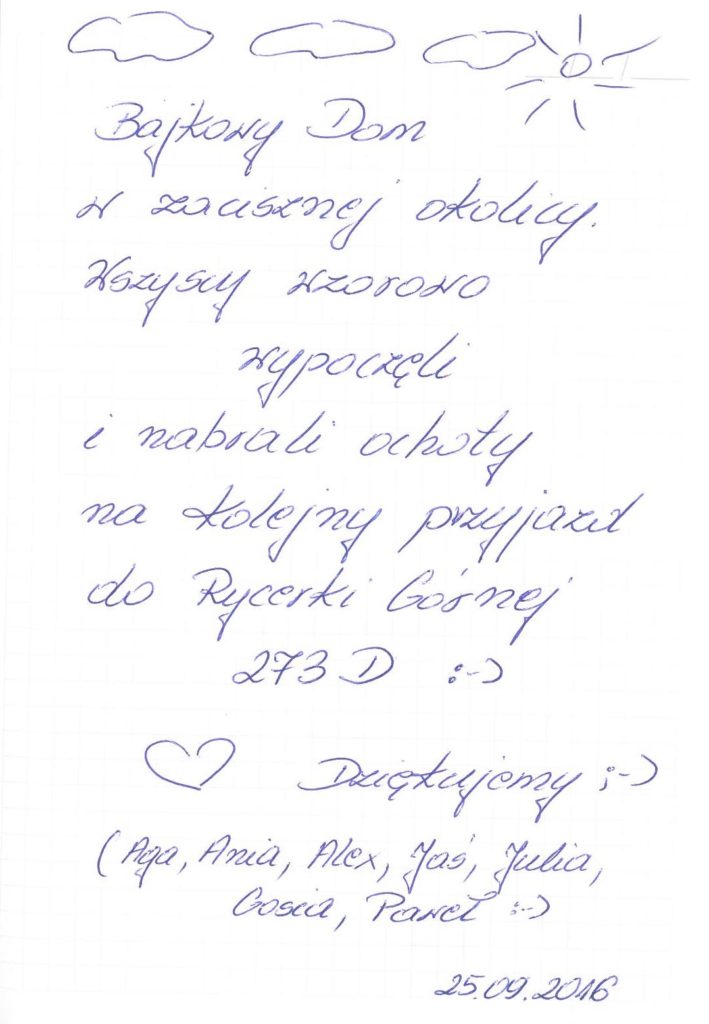 Bajkowy Dom
w zacisznej okolicy.
Wszyscy wzorowo
wypoczęli
i nabrali ochoty
na kolejny przyjazd
do Rycerki Górnej
273 D :-)
Dziękujemy ;-)
(Aga, Ania, Alex, Jaś, Julia,
Gosia, Paweł :-)
25.09.2016